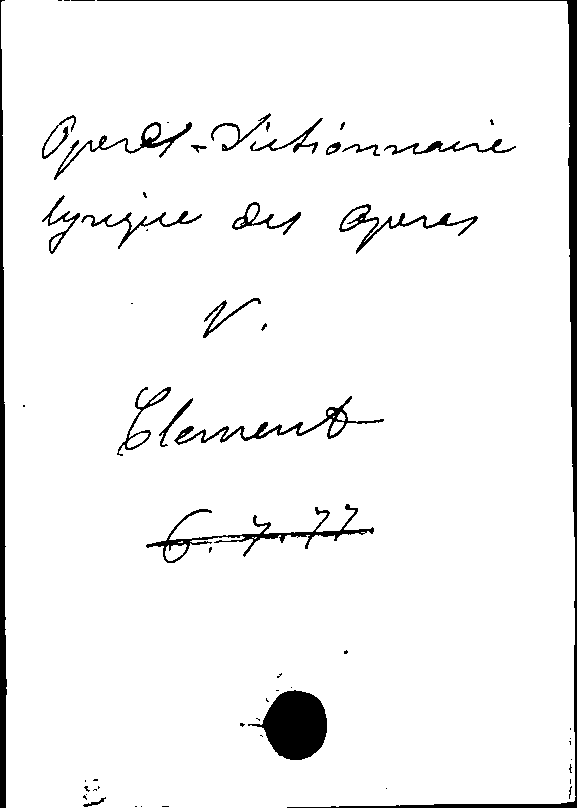 Operas-Dictionnaire
lyrique des operas
V.
Clement
6. 7. 77